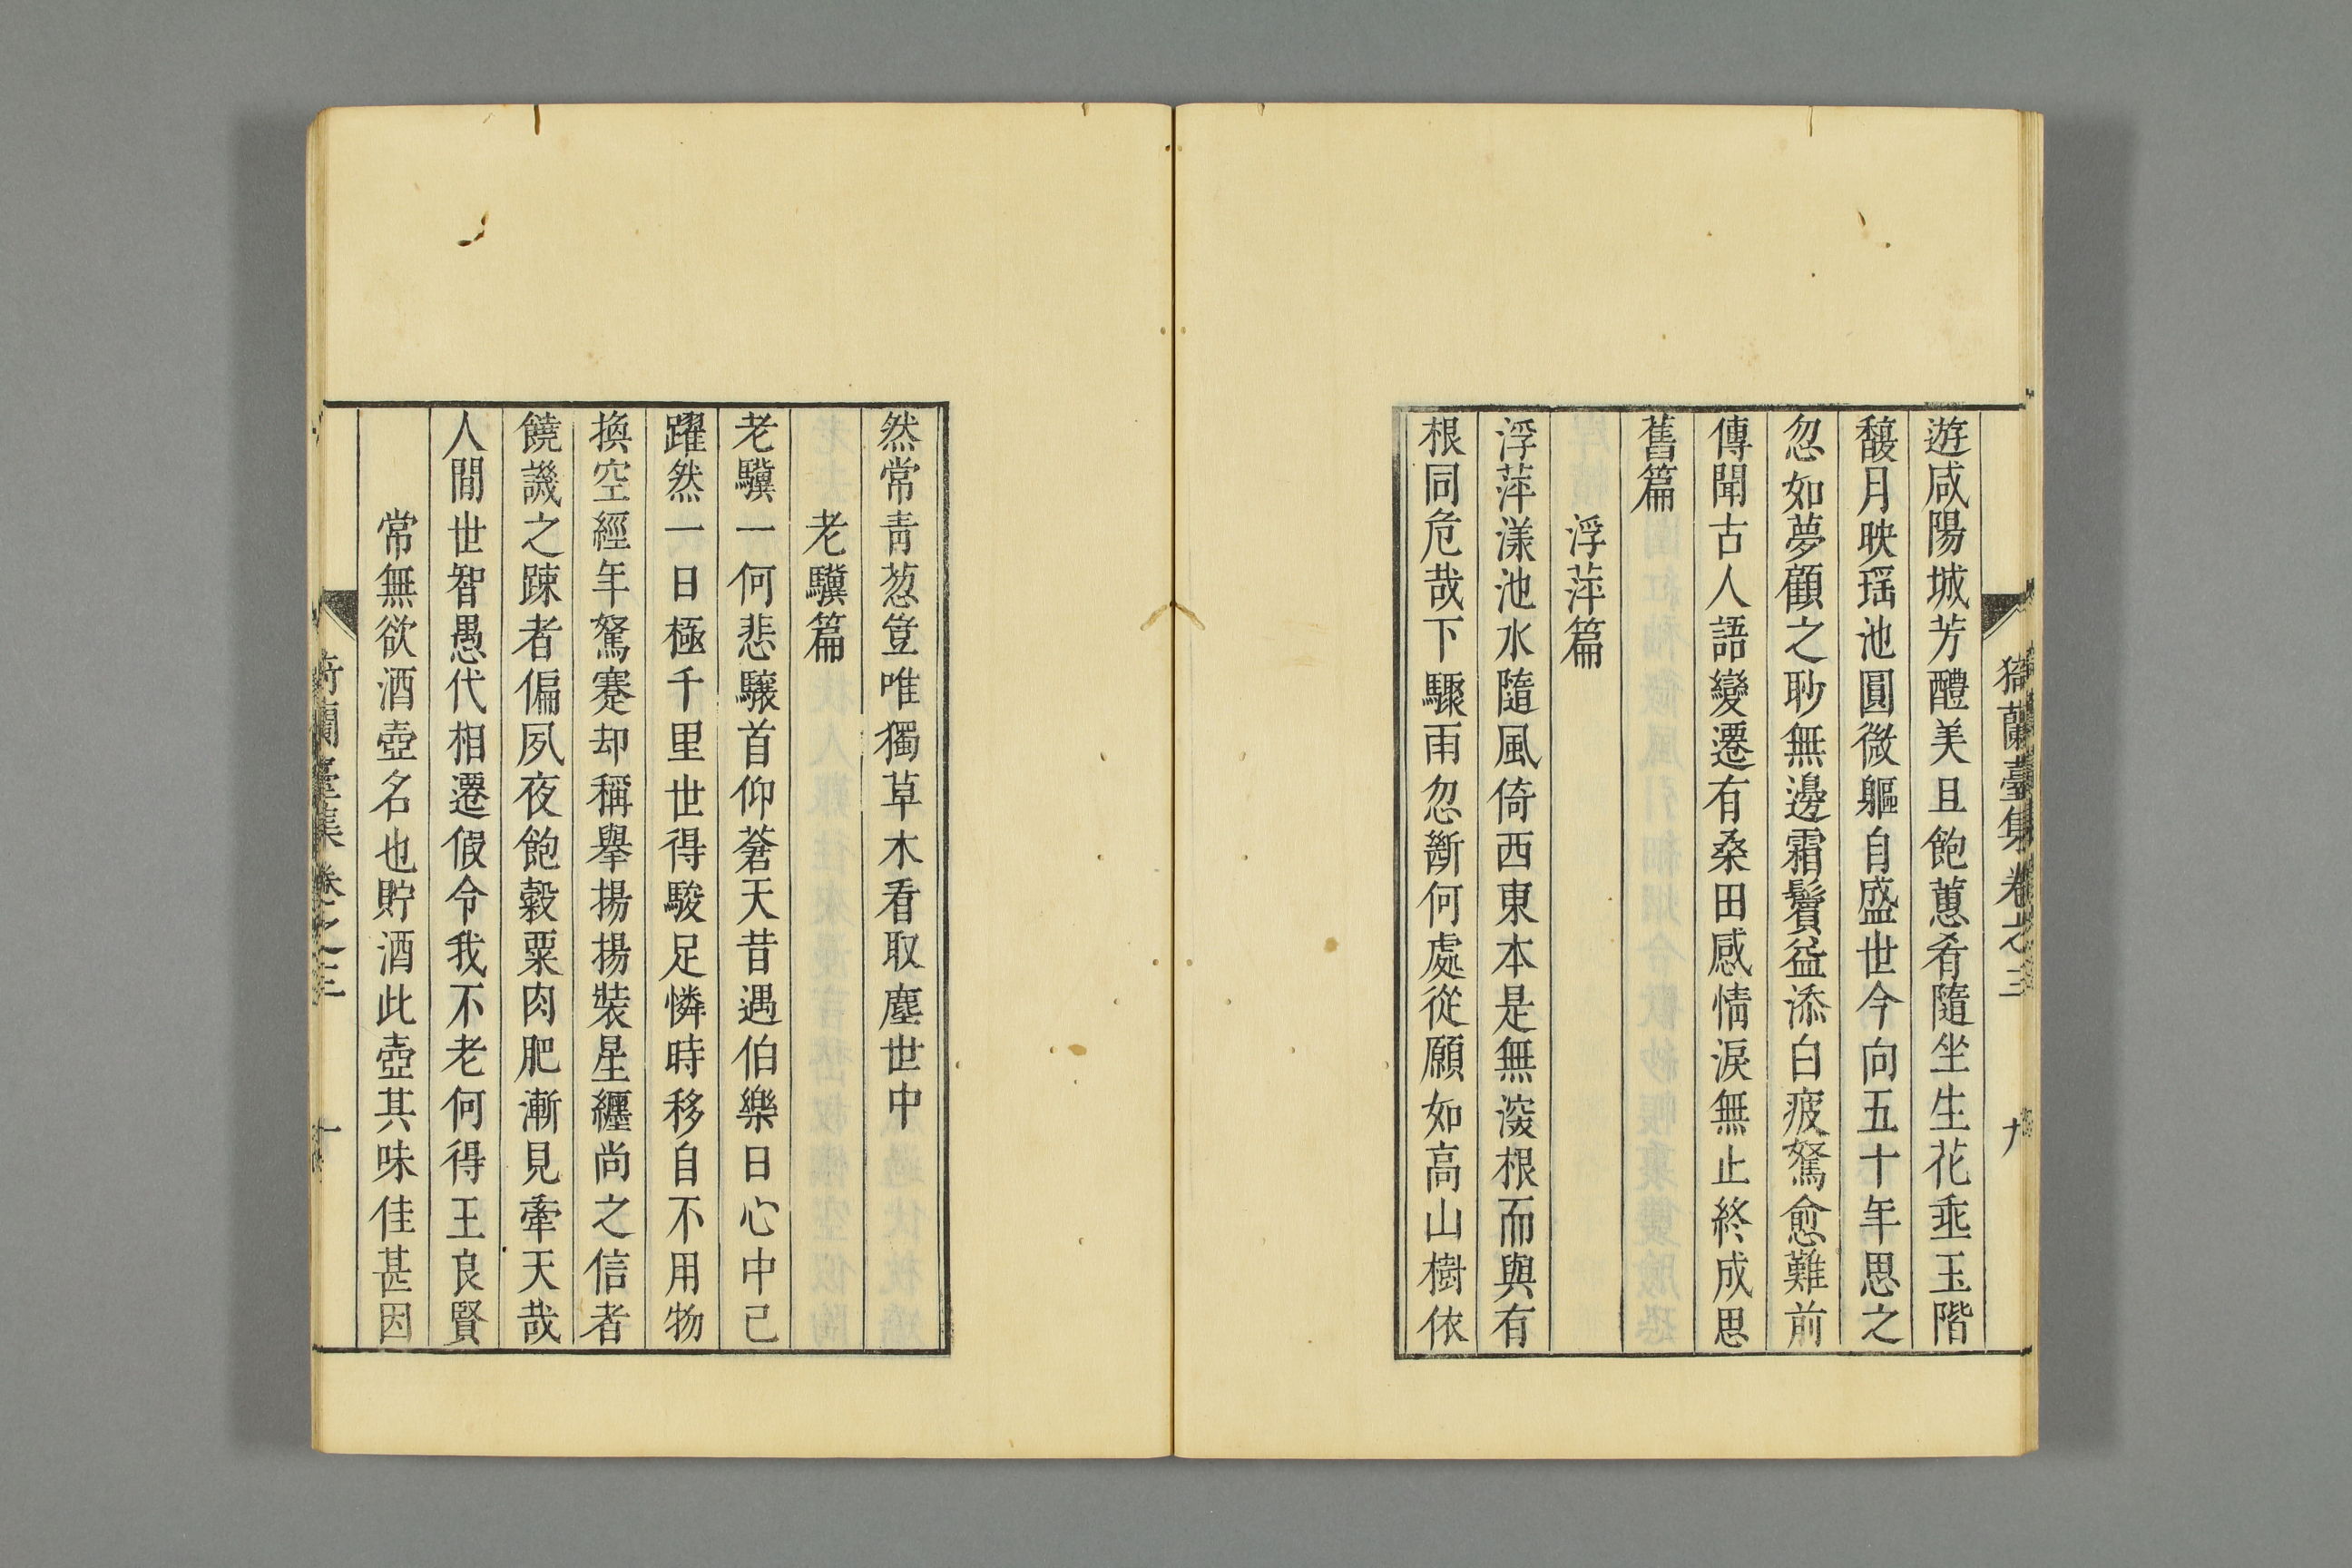 猗蘭臺集卷之三 九
遊咸陽城芳醴美且飽蕙肴隨坐生花乖玉階
馥月映瑶池圓微軀自盛世今向五十年思之
忽如夢顧之眇無邊霜鬢益添白疲駑愈難前
傳聞古人語變遷有桑田感情淚無止終成思
舊篇
浮萍篇
浮萍漾池水隨風倚西東本是無深根而與有
根同危哉下驟雨忽斷何處從願如高山樹依
然常青葱豈唯獨草木看取塵世中
老驥篇
老驥一何悲驤首仰蒼天昔遇伯樂日心中已
躍然一日極千里世得駿足憐時移自不用物
換空經年駑蹇却稱舉揚揚裝星纏尚之信者
饒譏之踈者偏夙夜飽穀粟肉肥漸見牽天哉
人間世智愚代相遷假令我不老何得王良賢
常無欲酒壺名也貯酒此壺其味佳甚因
猗蘭臺集卷之三 十